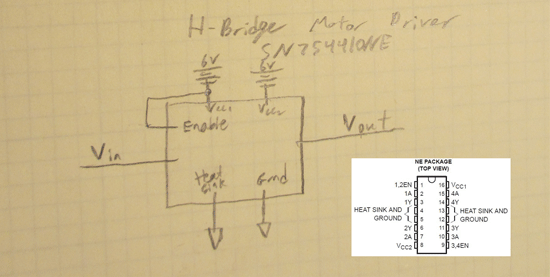 H-Bridge Motor Driver
SN754410NE
6V 6V
Vcc1 Vcc2
Enable
Vin
Vout
Heat Sink
Gnd
NE PACKAGE
(TOP VIEW)
1,2EN 1 16 VCC1
1A 2 15 4A
1Y 3 14 4Y
HEAT SINK AND 4 13 HEAT SINK AND
GROUND 5 12 GROUND
2Y 6 11 3Y
2A 7 10 3A
VCC2 8 9 3,4EN